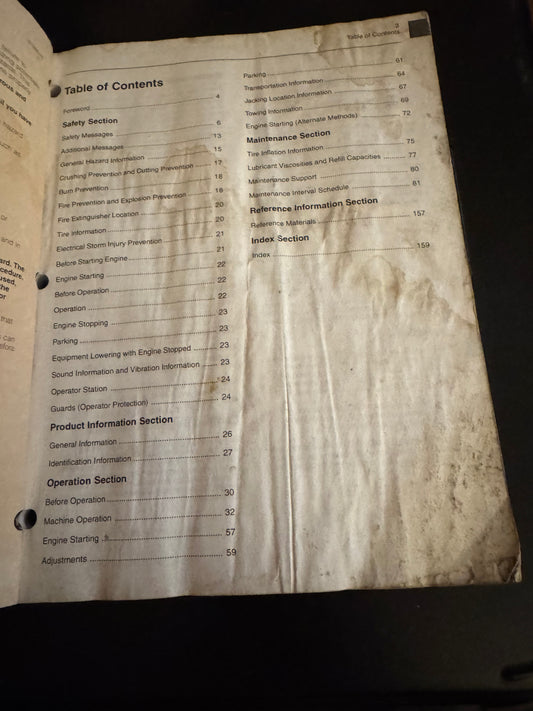 rous and
you have
or
and in
The
used,
the
or
that
can
3
Table of Contents
Table of Contents
Foreword ........ 4
Safety Section
Safety Messages ........ 6
Additional Messages ........ 13
General Hazard Information ........ 15
Crushing Prevention and Cutting Prevention ........ 17
Burn Prevention ........ 18
Fire Prevention and Explosion Prevention ........ 18
Fire Extinguisher Location ........ 20
Tire Information ........ 20
Electrical Storm Injury Prevention ........ 21
Before Starting Engine ........ 21
Engine Starting ........ 22
Before Operation ........ 22
Operation ........ 22
Engine Stopping ........ 23
Parking ........ 23
Equipment Lowering with Engine Stopped ........ 23
Sound Information and Vibration Information ........ 23
Operator Station ........ 24
Guards (Operator Protection) ........ 24
Product Information Section
General Information ........ 26
Identification Information ........ 27
Operation Section
Before Operation ........ 30
Machine Operation ........ 32
Engine Starting ........ 57
Adjustments ........ 59
Parking ........ 61
Transportation Information ........ 64
Jacking Location Information ........ 67
Towing Information ........ 69
Engine Starting (Alternate Methods) ........ 72
Maintenance Section
Tire Inflation Information ........ 75
Lubricant Viscosities and Refill Capacities ........ 77
Maintenance Support ........ 80
Maintenance Interval Schedule ........ 81
Reference Information Section
Reference Materials ........ 157
Index Section
Index ........ 159